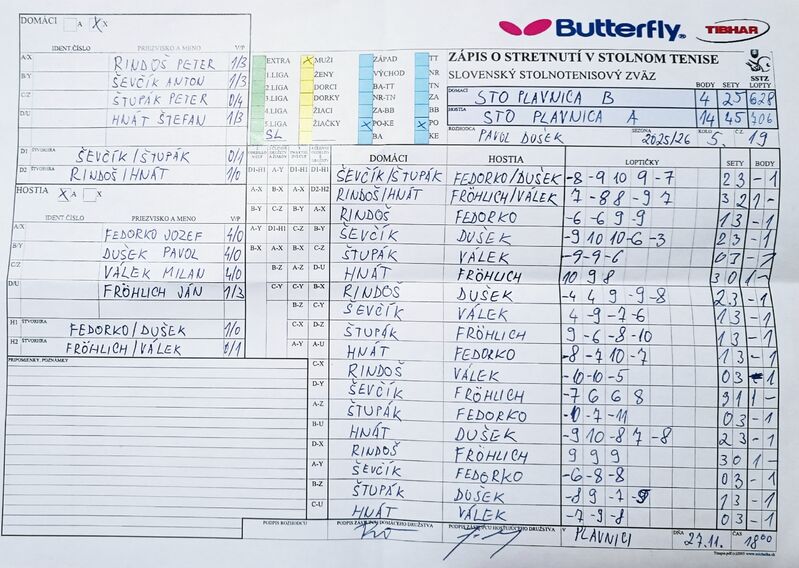 DOMÁCI A X X
Butterfly TIBHAR
IDENT.ČÍSLO PRIEZVISKO A MENO V/P
A/X RINDOŠ PETER 1/3
B/Y ŠEVČÍK ANTON 1/3
C/Z ŠTUPÁK PETER 0/4
D/U HNÁT ŠTEFAN 1/3
D1 ŠEVČÍK/ŠTUPÁK 0/1
D2 RINDOŠ/HNÁT 1/0
HOSTIA X A X
IDENT ČÍSLO PRIEZVISKO A MENO V/P
A/X FEDORKO JOZEF 4/0
B/Y DUŠEK PAVOL 4/0
C/Z VÁLEK MILAN 4/0
D/U FRÖHLICH JÁN 1/3
H1 ŠTVORHRA FEDORKO/DUŠEK 1/0
H2 ŠTVORHRA FRÖHLICH/VÁLEK 0/1
PRIPOMIENKY, POZNÁMKY
EXTRA X MUŽI ZÁPAD TT
1.LIGA ŽENY VÝCHOD NR
2.LIGA DORCI BA-TT TN
3.LIGA DORKY NR-TN ZA
4.LIGA ŽIACI ZA-BB BB
5.LIGA ŽIAČKY X PO-KE X PO
SL BA KE
ZÁPIS O STRETNUTÍ V STOLNOM TENISE
SLOVENSKÝ STOLNOTENISOVÝ ZVÄZ SSTZ
BODY SETY LOPTY
DOMÁCI STO PLAVNICA B 4 25 628
HOSTIA STO PLAVNICA A 14 45 706
ROZHODCA PAVOL DUŠEK SEZONA 2025/26 KOLO 5. Č.Z. 19
DOMÁCI HOSTIA LOPTIČKY SETY BODY
D1-H1 A-Y D1-H1 D1-H1 ŠEVČÍK/ŠTUPÁK FEDORKO/DUŠEK -8 -9 10 9 -7 2 3 - 1
A-X B-X A-X D2-H2 RINDOŠ/HNÁT FRÖHLICH/VÁLEK 7 -8 8 -9 7 3 2 1 -
B-Y C-Z B-Y A-X RINDOŠ FEDORKO -6 -6 9 -9 1 3 - 1
A-Y D1-H1 C-Z B-Y ŠEVČÍK DUŠEK -9 10 10 -6 -3 2 3 - 1
B-X A-X B-X C-Z ŠTUPÁK VÁLEK -9 -9 -6 0 3 - 1
B-Z A-Z D-U HNÁT FRÖHLICH 10 9 8 3 0 1 -
C-Y C-Y B-X RINDOŠ DUŠEK -4 4 9 -9 -8 2 3 - 1
B-Z C-Y ŠEVČÍK VÁLEK 4 -9 -7 -6 1 3 - 1
C-X D-Z ŠTUPÁK FRÖHLICH 9 -6 -8 -10 1 3 - 1
A-Y A-U HNÁT FEDORKO -8 -7 10 -7 1 3 - 1
C-X RINDOŠ VÁLEK -10 -10 -5 0 3 - 1
D-Y ŠEVČÍK FRÖHLICH -7 6 6 8 3 1 1 -
A-Z ŠTUPÁK FEDORKO -10 -7 -11 0 3 - 1
B-U HNÁT DUŠEK -9 10 -8 7 -8 2 3 - 1
D-X RINDOŠ FRÖHLICH 9 9 9 3 0 1 -
A-Y ŠEVČÍK FEDORKO -6 -8 -8 0 3 - 1
B-Z ŠTUPÁK DUŠEK -8 9 -7 -9 1 3 - 1
C-U HNÁT VÁLEK -7 -9 -8 0 3 - 1
PODPIS ROZHODCU PODPIS ZÁSTUPCU DOMÁCEHO DRUŽSTVA PODPIS ZÁSTUPCU HOSŤUJÚCEHO DRUŽSTVA V PLAVNICI DŇA 27.11. ČAS 18:00